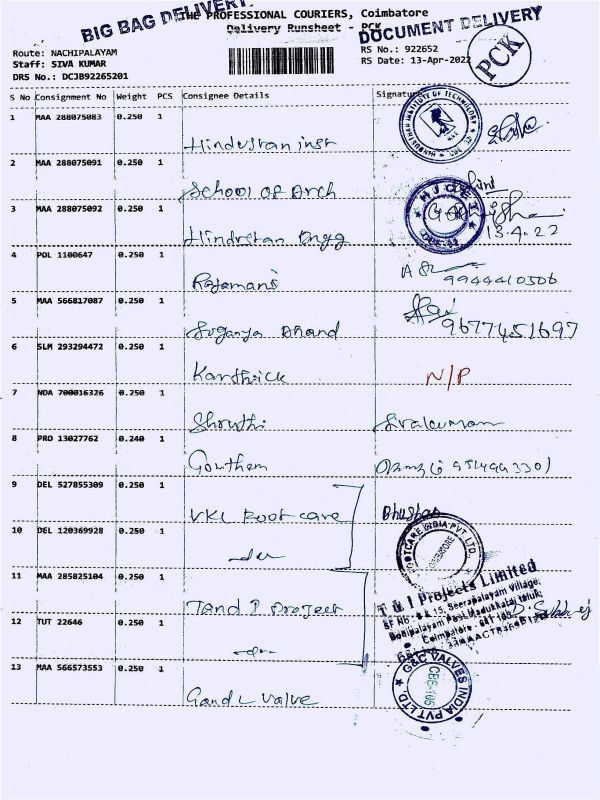 BIG BAG DELIVERY
THE PROFESSIONAL COURIERS, Coimbatore
Delivery Runsheet - PCK
DOCUMENT DELIVERY
PCK
Route: NACHIPALAYAM
Staff: SIVA KUMAR
DRS No.: DC3B92265201
RS No.: 922652
RS Date: 13-Apr-2022
S No Consignment No Weight PCS Consignee Details Signature
1 MAA 288075083 0.250 1 Hindustan inst
2 MAA 288075091 0.250 1 School of Arch
3 MAA 288075092 0.250 1 Hindustan Engg 13.4.22
4 POL 1100647 0.250 1 Rajamani 9944410506
5 MAA 566817087 0.250 1 Suganya Anand 9677451697
6 SLM 293294472 0.250 1 Karthick N/P
7 NDA 700016326 0.250 1 Shruthi Sivakumar
8 PRO 13027762 0.240 1 Goutham
9 DEL 527855309 0.250 1 VKC Foot care Bhushan
FOOTCARE INDIA PVT. LTD.
COIMBATORE
10 DEL 120369928 0.250 1 -do-
11 MAA 285825104 0.250 1 T and I Project
T & I Projects Limited
SF No: 8 & 15, Seerapalayam Village,
Bodipalayam Post, Madukkarai taluk,
Coimbatore - 641 105
12 TUT 22646 0.250 1 -do-
13 MAA 566573553 0.250 1 G and C Valve
G&C VALVES INDIA PVT. LTD.
CBE-105